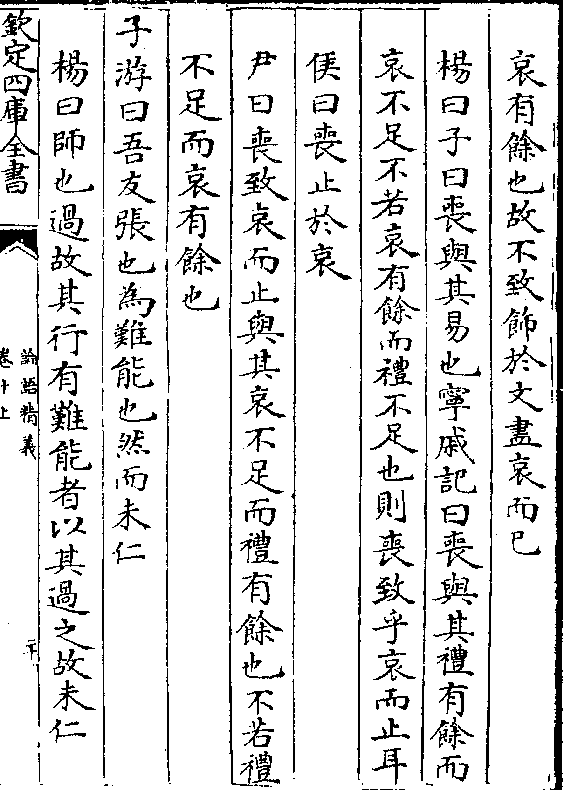 哀有餘也故不致飾於文盡哀而已
楊曰子曰喪與其易也寧戚記曰喪與其禮有餘而
哀不足不若哀有餘而禮不足也則喪致乎哀而止耳
侯曰喪止於哀
尹曰喪致哀而止與其哀不足而禮有餘也不若禮
不足而哀有餘也
子游曰吾友張也為難能也然而未仁
楊曰師也過故其行有難能者以其過之故未仁
欽定四庫全書
論語精義
卷十上